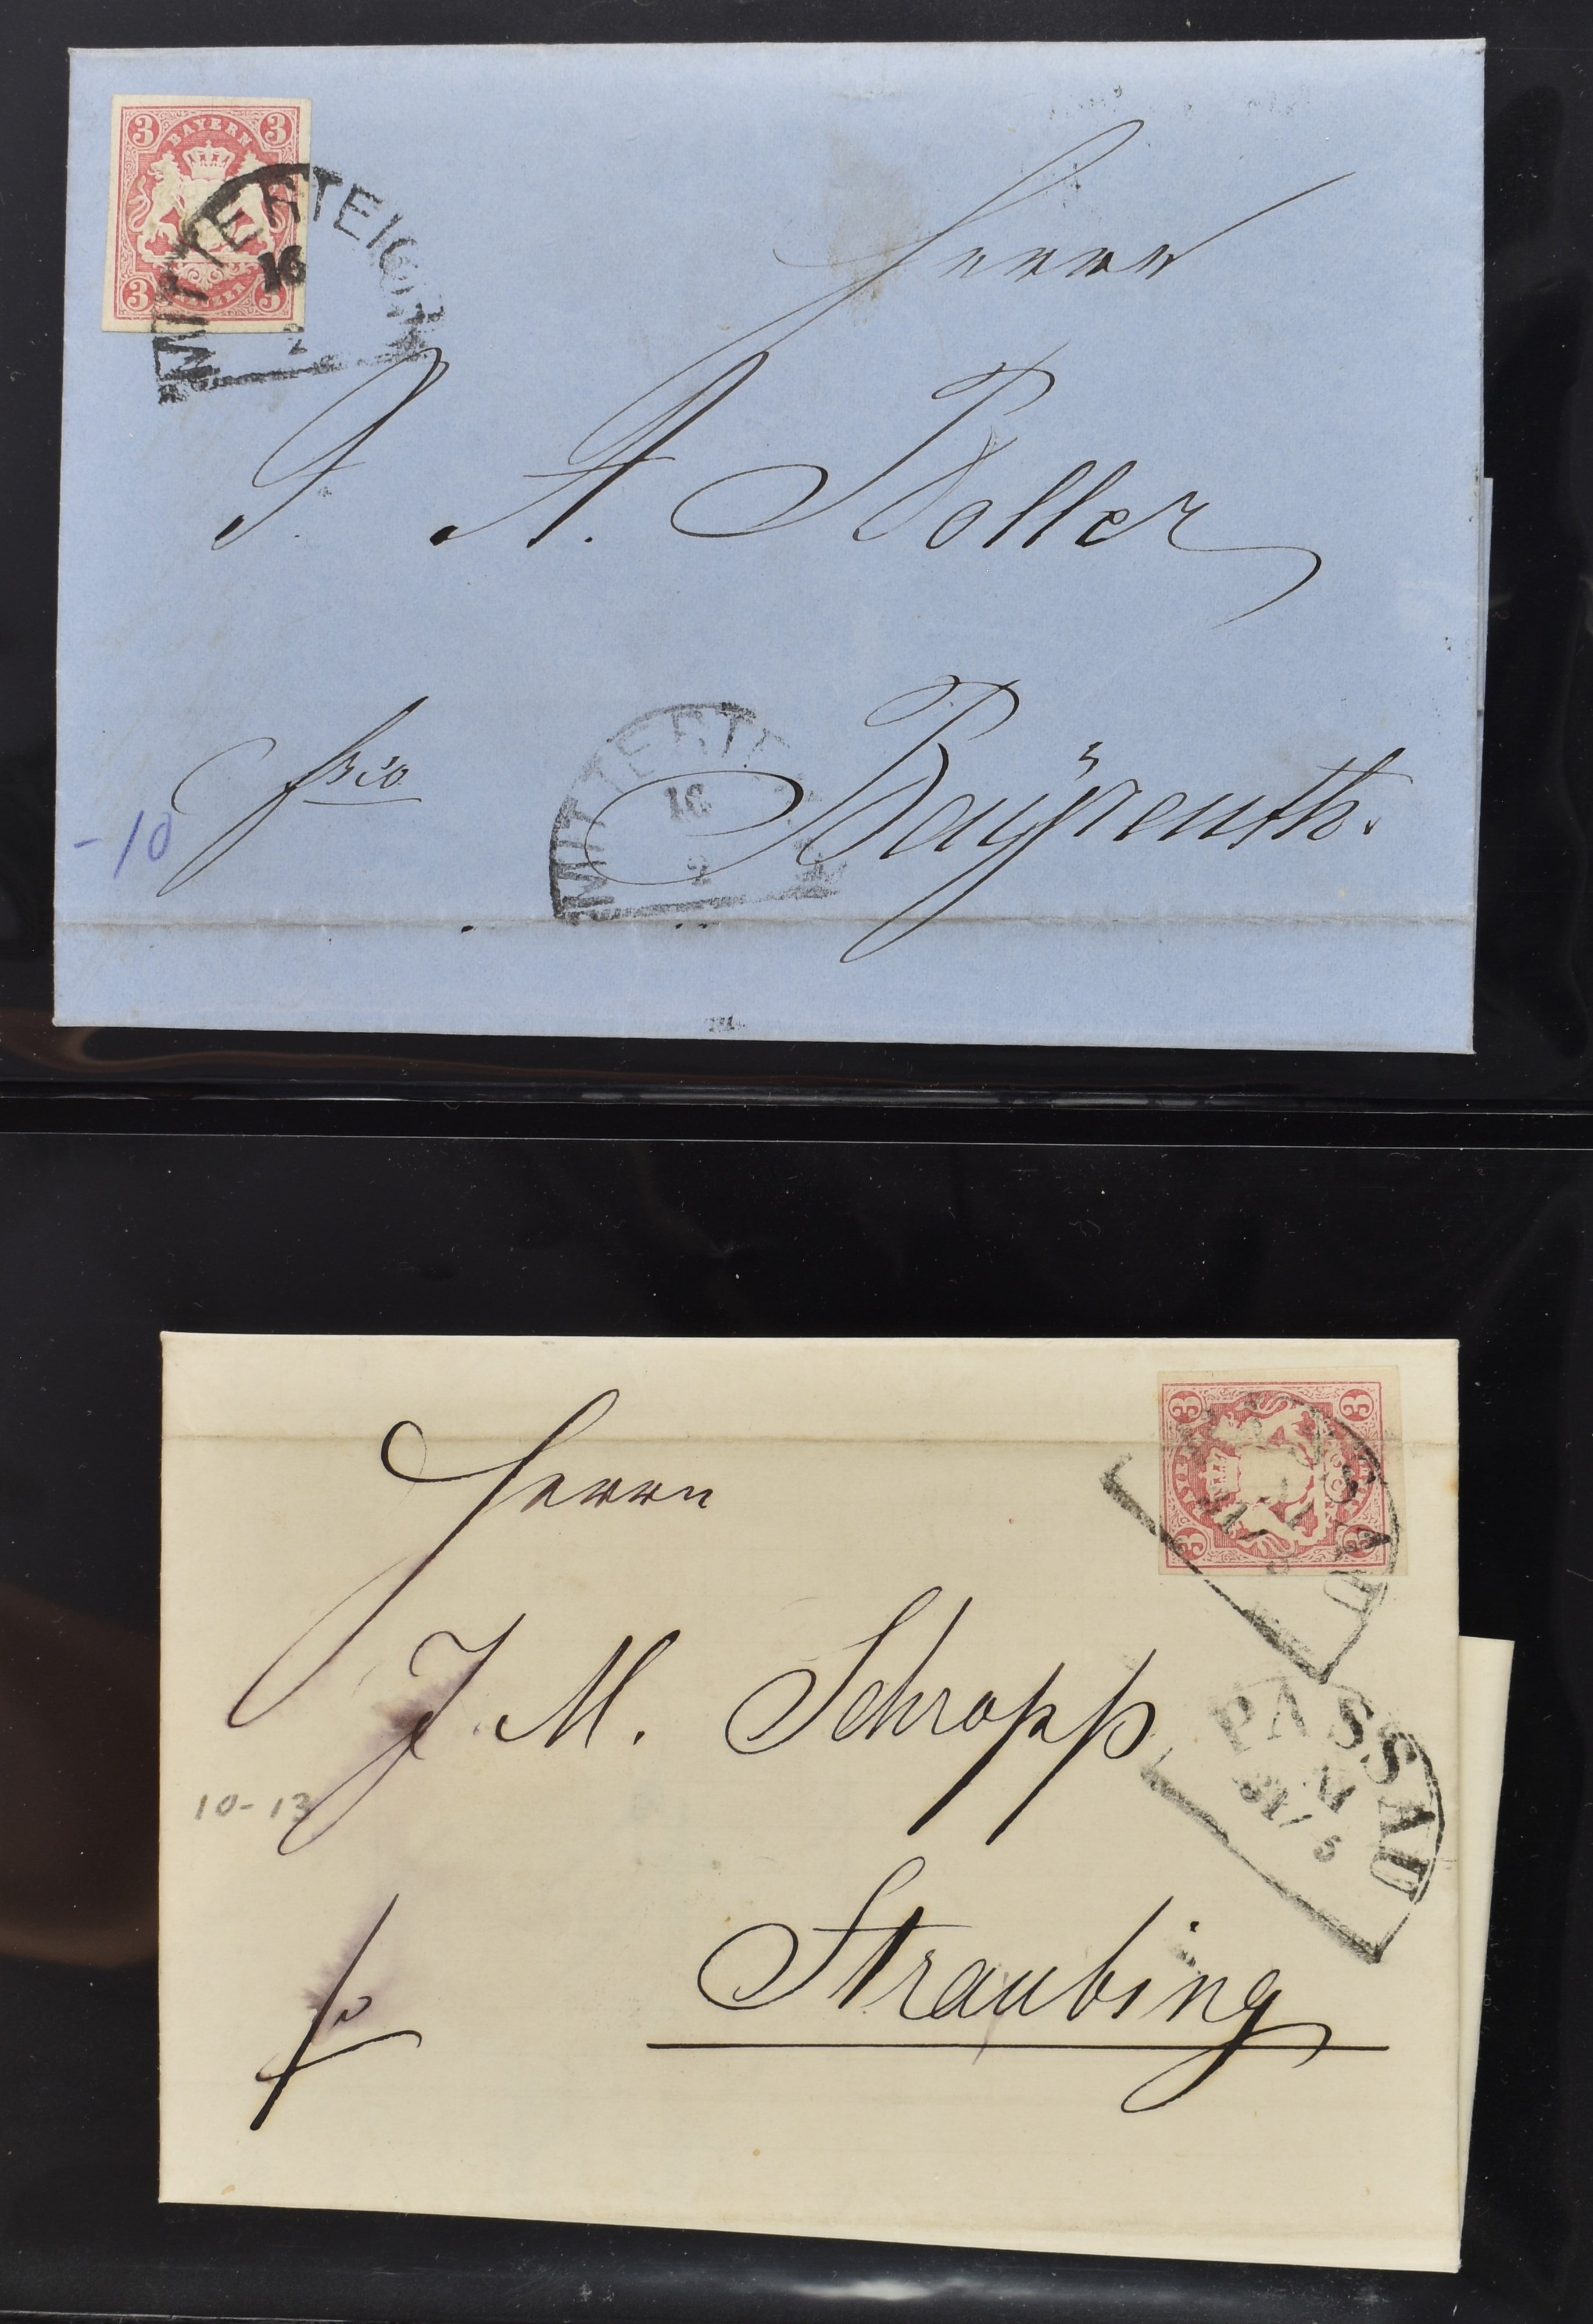 3 BAYERN 3
3 3
MITTERTEICH
16
2
Herrn
F. A. Boller
frco
Bayreuth.
-10
MITTERTE
16
2
3 3
3 3
PASSAU
31/5
Herrn
J. M. Schropp
PASSAU
31/5
10-13
Straubing